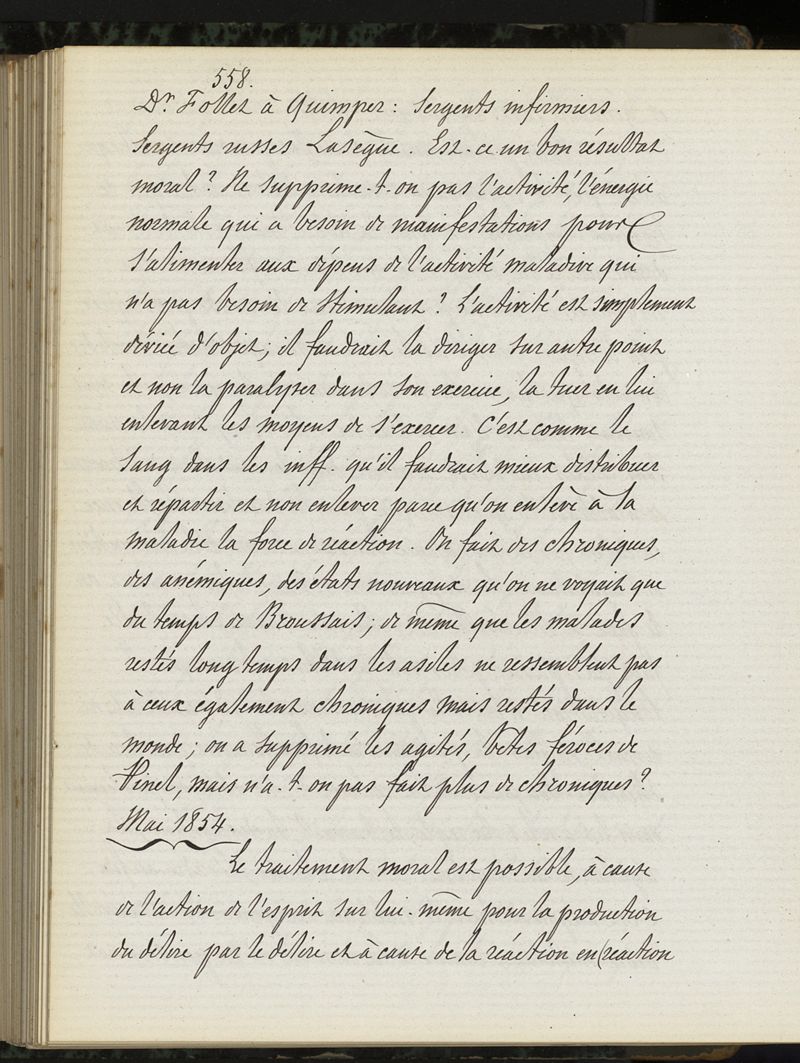 558.
Dr. Follet à Quimper : Sergents infirmiers.
Sergents russes Lasègue. Est-ce un bon résultat
moral ? Ne supprime-t-on pas l'activité, l'énergie
normale qui a besoin de manifestations pour
s'alimenter aux dépens de l'activité maladive qui
n'a pas besoin de stimulant ? L'activité est simplement
déviée d'objet; il faudrait la diriger sur autre point
et non la paralyser dans son exercice, la tuer en lui
enlevant les moyens de s'exercer. C'est comme le
sang dans les inff. qu'il faudrait mieux distribuer
et répartir et non enlever parce qu'on enlève à la
maladie la force de réaction. On fait des chroniques,
des anémiques, des états nouveaux qu'on ne voyait que
du temps de Broussais; de même que les malades
restés longtemps dans les asiles ne ressemblent pas
à ceux également chroniques mais restés dans le
monde; on a supprimé les agités, bêtes féroces de
Pinel, mais n'a-t-on pas fait plus de chroniques ?
Mai 1854.
Le traitement moral est possible, à cause
de l'action de l'esprit sur lui-même pour la production
du délire par le délire et à cause de la réaction en (réaction